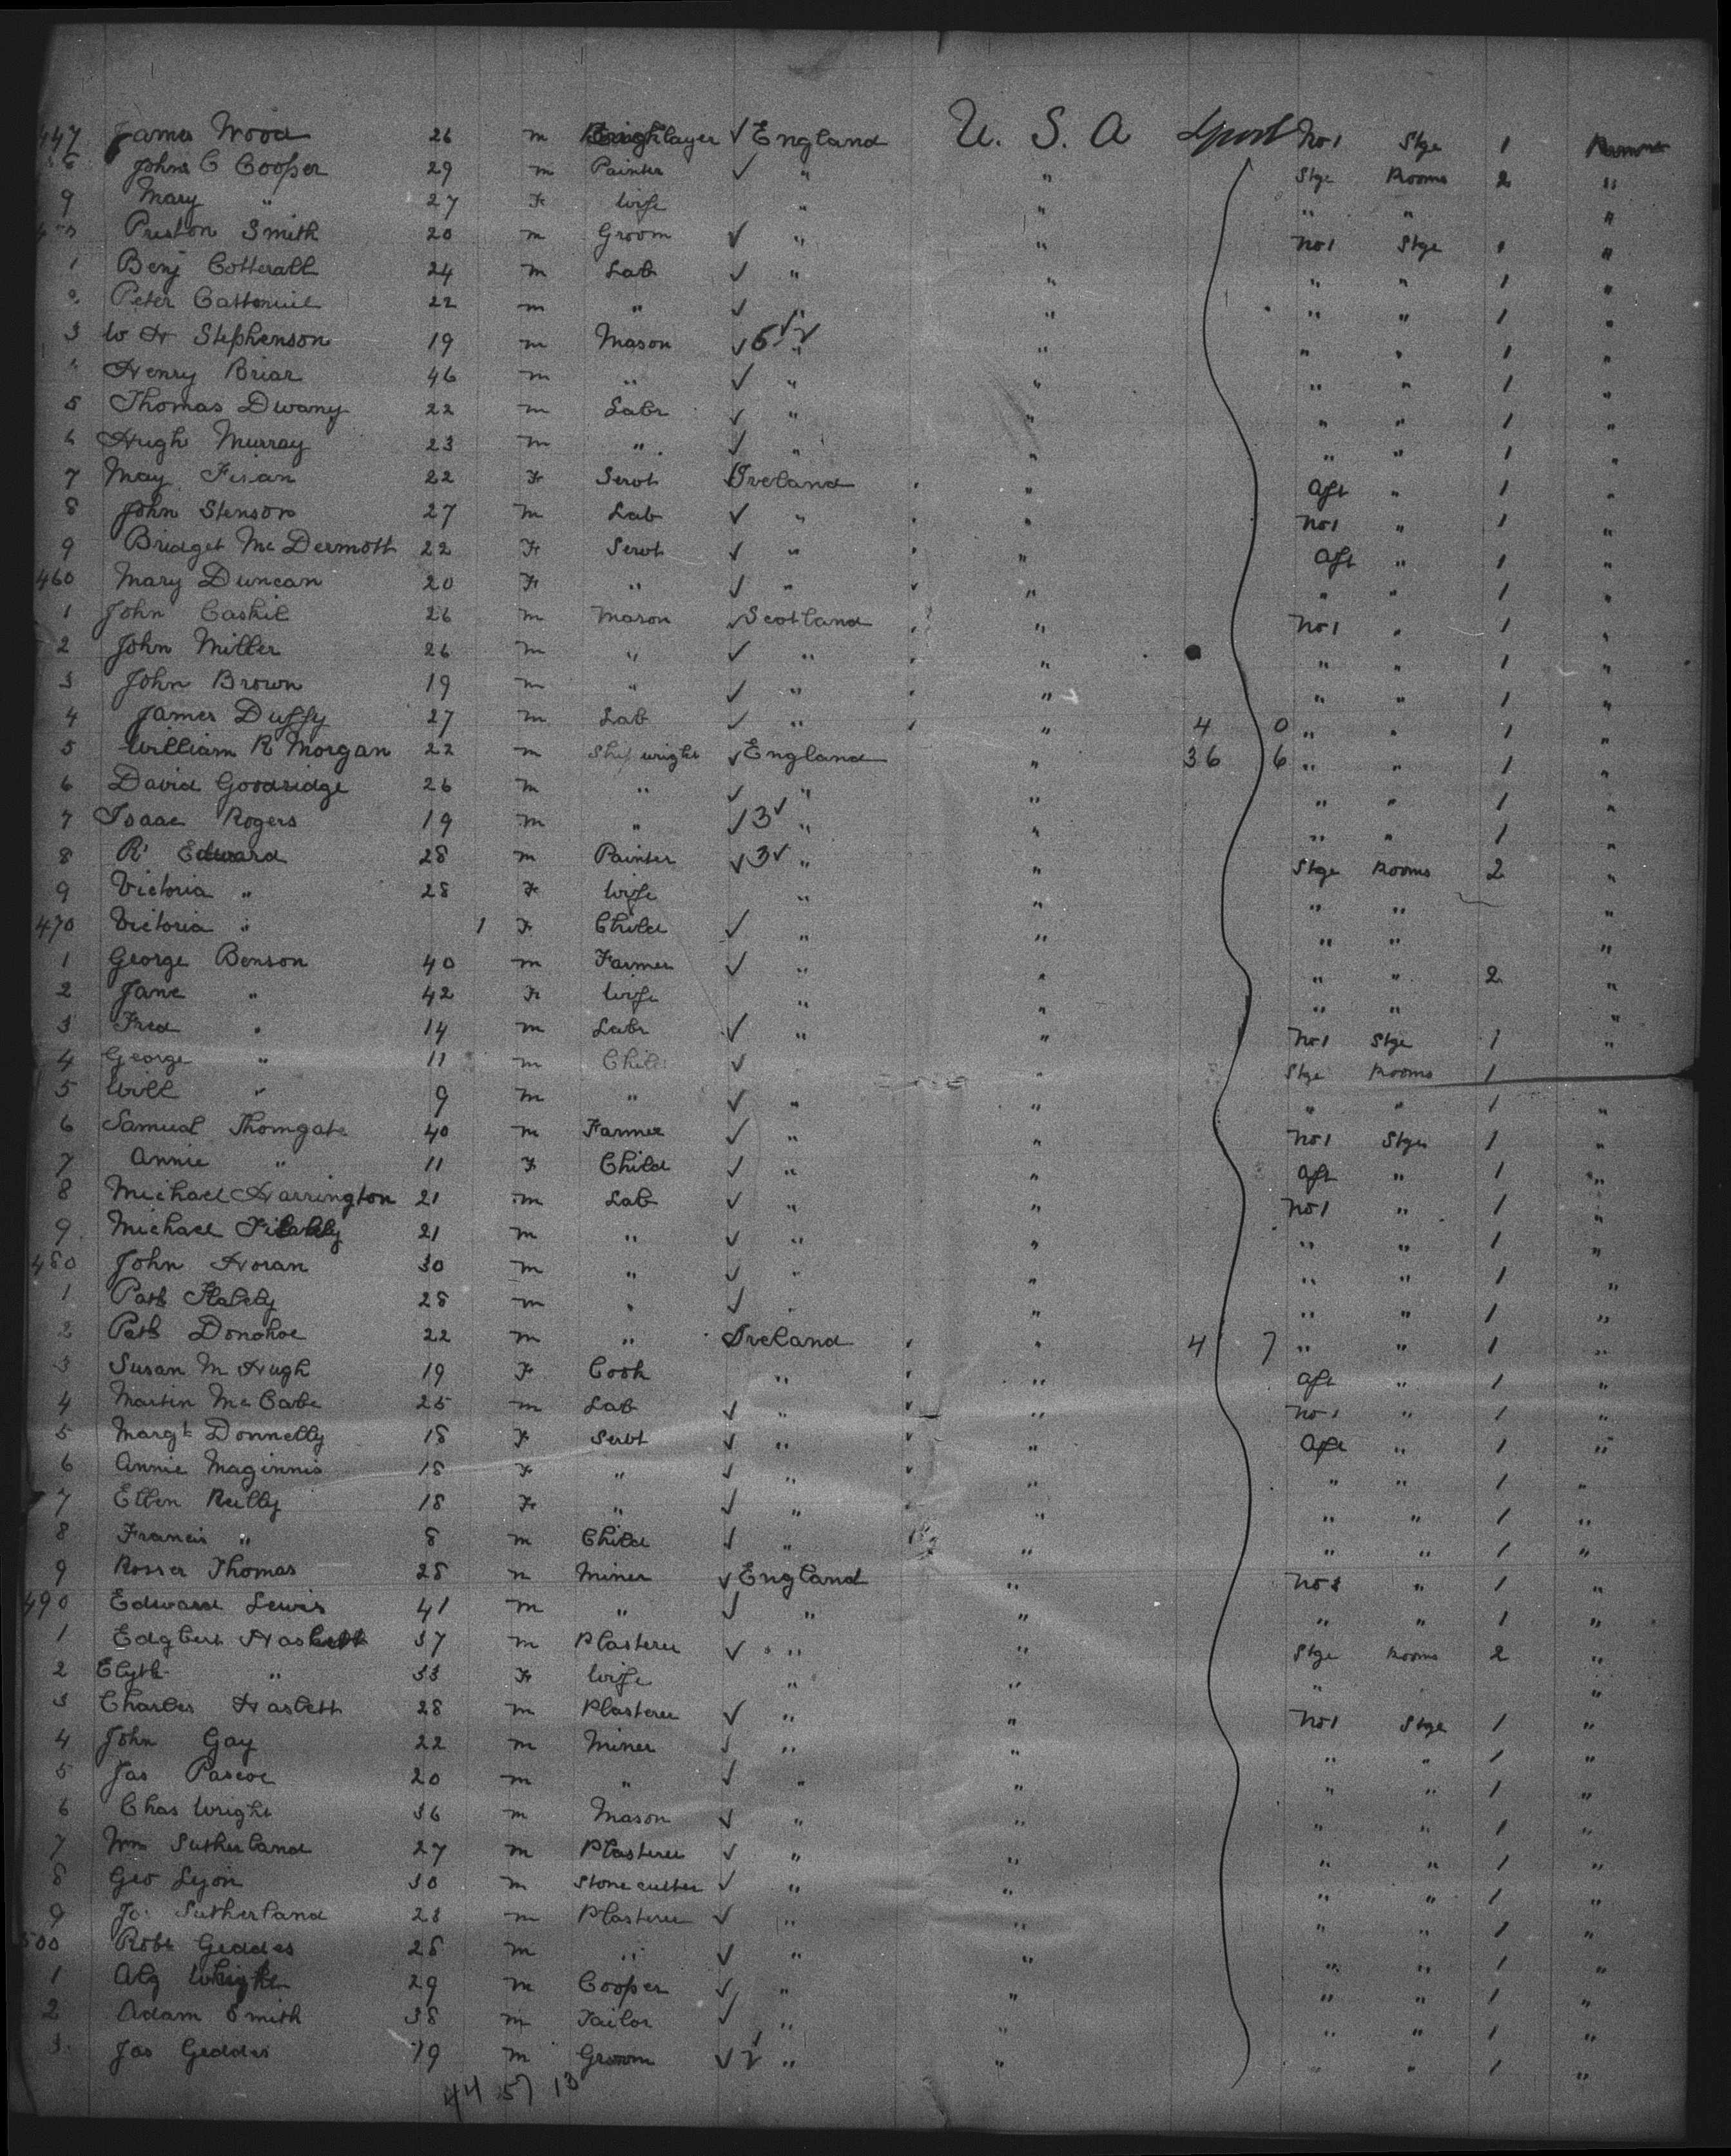 447 James Wood 26 m Bricklayer √ England U. S. A Lpool No 1 Stge 1
John C Cooper 29 m Painter √ " " Stge Rooms 2 "
9 Mary " 27 F Wife " " " " "
Preston Smith 20 m Groom √ " " No 1 Stge 1 "
1 Benj Cotterall 24 m Lab √ " " " " 1 "
2 Peter 22 m " √ " " " " 1 "
3 W H Stephenson 19 m Mason √ " " " " 1 "
Henry Briar 46 m " √ " " " " 1 "
5 Thomas Dwany 22 m Labr √ " " " " 1 "
6 Hugh Murray 23 m " √ " " " " 1 "
7 May 22 F Servt Ireland " Aft " 1 "
8 John Stenson 27 m Lab √ " " No 1 " 1 "
9 Bridget Mc Dermott 22 F Servt √ " " Aft " 1 "
460 Mary Duncan 20 F " √ " " " " 1 "
1 John Caskil 26 m Mason √ Scotland " No 1 " 1 "
2 John Miller 26 m " √ " " " " 1 "
3 John Brown 19 m " √ " " " " 1 "
4 James Duffy 27 m Lab √ " " 4 0 " " 1 "
5 William R Morgan 22 m Shipwright √ England " 36 6 " " 1 "
6 David Goodridge 26 m " √ " " " " 1 "
7 Isaac Rogers 19 m " √ 3 √ " " " " 1 "
8 R Edward 28 m Painter √ 3 √ " " Stge Rooms 2 "
9 Victoria " 28 F Wife " " " " "
470 Victoria " 1 F Child √ " " " " "
1 George Benson 40 m Farmer √ " " " " 2 "
2 Jane " 42 F Wife " " " " "
3 Fred " 14 m Labr √ " " No 1 Stge 1 "
4 George " 11 m Child √ " Stge Rooms 1
5 Will " 9 m " √ " " " " 1 "
6 Samuel Thorngate 40 m Farmer √ " " No 1 Stge 1 "
7 Annie " 11 F Child √ " " Aft " 1 "
8 Michael Harrington 21 m Lab √ " " No 1 " 1 "
9 Michael 21 m " √ " " " " 1 "
480 John Horan 30 m " √ " " " " 1 "
1 Patk 28 m " √ " " " " 1 "
2 Patk Donohoe 22 m " Ireland " 4 7 " " 1 "
3 Susan M Hugh 19 F Cook " " Aft " 1 "
4 Martin Mc Cabe 25 m Lab √ " " No 1 " 1 "
5 Margt Donnelly 18 F Servt √ " " Aft " 1 "
6 Annie Maginnis 18 F " √ " " " " 1 "
7 Ellen Reilly 18 F " √ " " " " 1 "
8 Francis " 8 m Child √ " " " " 1 "
9 Rosser Thomas 28 m Miner √ England " No " 1 "
490 Edward Lewis 41 m " √ " " " " 1 "
1 Edgbert Haslett 37 m Plasterer √ " " Stge Rooms 2 "
2 " 33 F Wife " " " "
3 Charles Haslett 28 m Plasterer √ " " No 1 Stge 1 "
4 John Gay 22 m Miner √ " " " " 1 "
5 Jas Pascoe 20 m " √ " " " " 1 "
6 Chas Wright 36 m Mason √ " " " " 1 "
7 Wm Sutherland 27 m Plasterer √ " " " " 1 "
8 Geo Lyon 30 m Stone cutter √ " " " " 1 "
9 Jo. Sutherland 28 m Plasterer √ " " " " 1 "
500 Robt Geddes 28 m " √ " " " " 1 "
1 Alg Wright 29 m Cooper √ " " " " 1 "
2 Adam Smith 38 m Tailor √ " " " " 1 "
3 Jas Geddes 19 m Groom √ " " " " 1 "
44 57 13